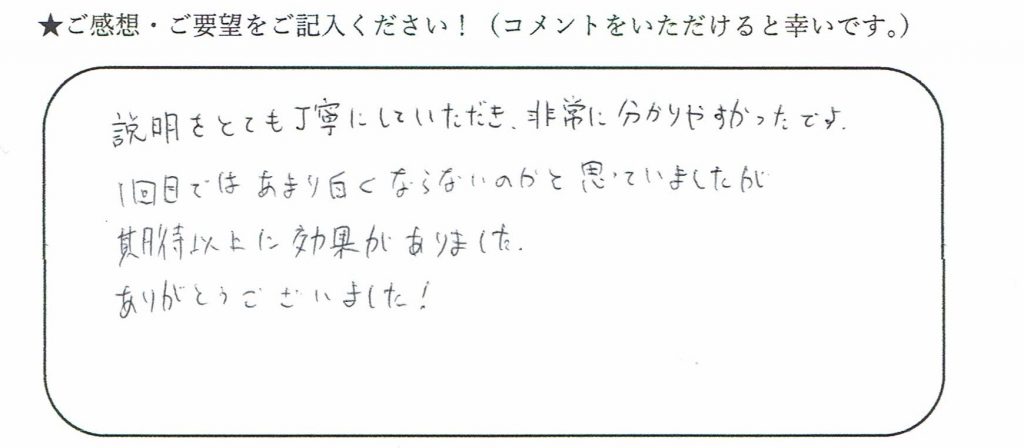 ★ご感想・ご要望をご記入ください！（コメントをいただけると幸いです。）
説明をとても丁寧にしていただき、非常に分かりやすかったです.
1回目ではあまり白くならないのかと思っていましたが
期待以上に効果がありました.
ありがとうございました！